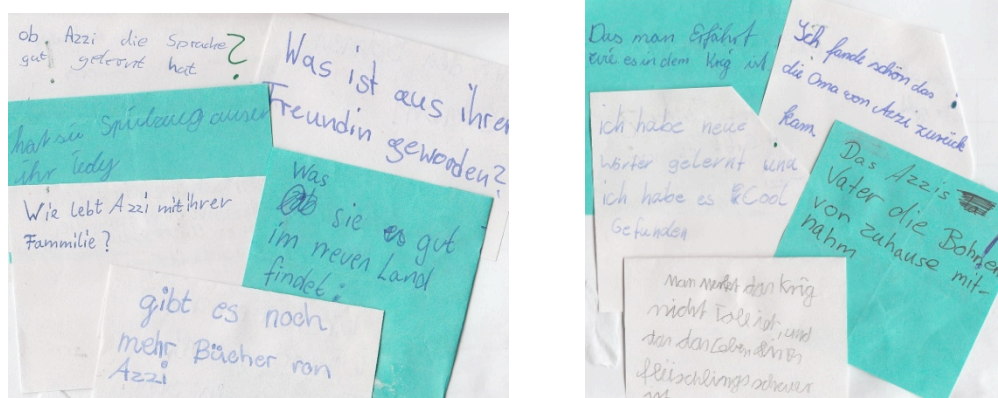 ob. Azzi die Sprache
gut gelernt hat ?
Was ist aus ihrer
Freundin geworden?
hat sie Spielzeug auser
ihr Tedy
Wie lebt Azzi mit ihrer
Fammilie?
Was
sie es gut
im neuen Land
findet.
gibt es noch
mehr Bücher von
Azzi
Das man Erfährt
wie es in dem Krig ist.
Ich fande schön das
die Oma von Azzi zurück
kam.
ich habe neue
wörter gelernt und
ich habe es Cool
Gefunden
Das Azzis
Vater die Bohnen
von zuhause mit-
nahm
Man merkt das Krig
nicht Toll ist, und
das das Leben